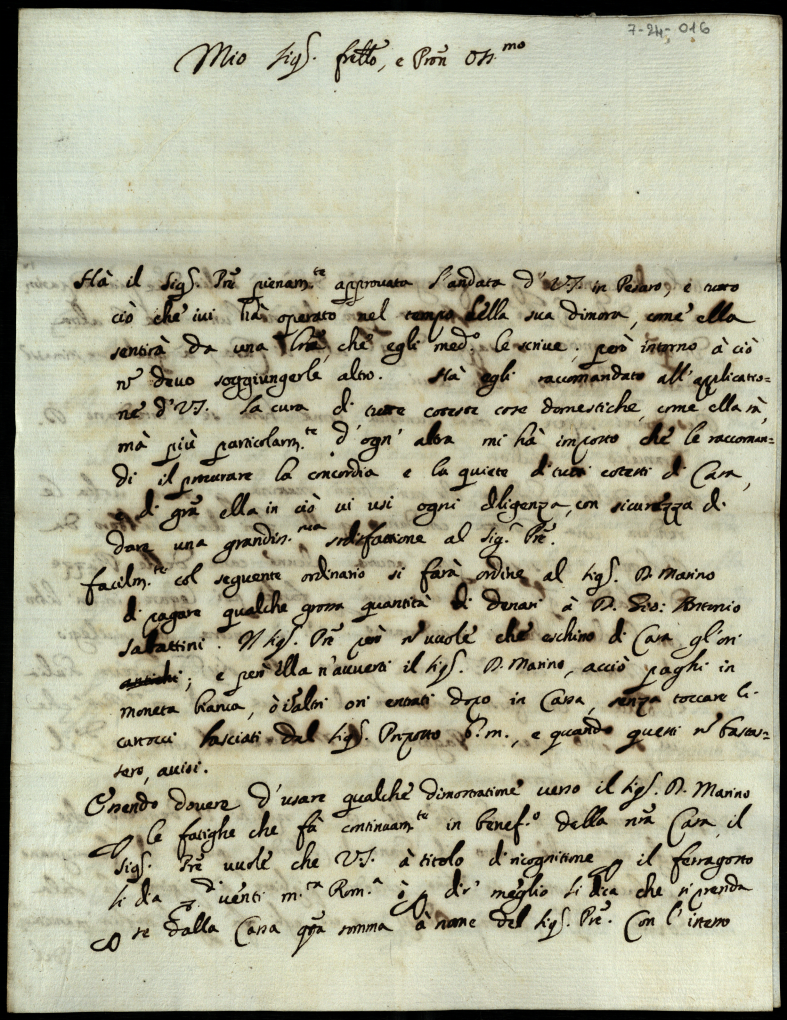 7-24-016
Mio Sig.r frello, e Pron Oss.mo
Hà il Sig.r Pre pienam.te approvata l'andata d'V.S. in Pesaro, e tutto
ciò che ivi hà operato nel tempo della sua dimora, come ella
sentirà da una lra, che egli med.o le scrive; però intorno à ciò
nõ devo soggiungerle altro. Hà egli raccomandato all'applicatio=
ne d'V.S. la cura di tutte coteste cose domestiche, come ella sà,
mà più particolarm.te d'ogn' altra mi hà imposto che le raccoman=
di il procurare la concordia e la quiete di tutti cotesti di Casa,
e di gra ella in ciò vi usi ogni diligenza, con sicurezza di
dare una grandiss.ma sodisfattione al Sig.r Pre.
Facilm.te col seguente ordinario si farà ordine al Sig.r D. Marino
di pagare qualche grossa quantità di denari à D. Gio: Antonio
Sabattini. Il Sig.r Pre però nõ vuole che eschino di Casa gl'ori
antichi; e però Ella n'avverti il Sig.r D. Marino, acciò paghi in
moneta bianca, ò d'altri ori entrati dopo in Cassa, senza toccare li
cartocci lasciati dal Sig.r Preposto b.m., e quando questi nõ bastas=
sero, avvisi.
Essendo dovere d'usare qualche dimostratione verso il Sig.r D. Marino
p le fatighe che fà continuam.te in benef.o della nra Casa, il
Sig.r Pre vuole che V.S. à titolo di ricognitione p il ferragosto
li dia venti m.ta Rom.a ò p dir' meglio li dica che si prenda
p se dalla Cassa qta somma à nome del Sig.r Pre. Con l'istesso